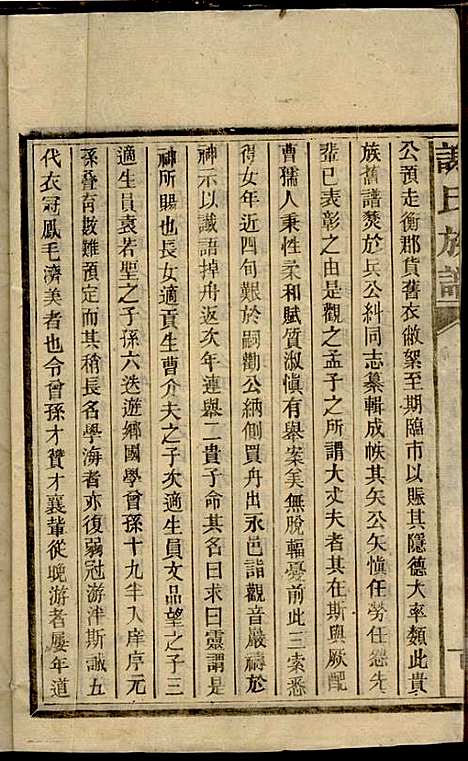 公預走衡郡貨舊衣敝絮至期臨市以賑其隱德大率類此貴
族舊譜焚於兵公糾同志纂輯成帙其矢公矢慎任勞任怨先
輩已表彰之由是觀之孟子之所謂大丈夫者其在斯與厥配
曹孺人秉性柔和賦質淑慎有舉案美無脫輻憂前此三索悉
得女年近四旬艱於嗣勸公納側買舟出永邑詣觀音嚴禱於
神示以讖語掉舟返次年連舉二貴子命其名曰求曰靈謂是
神所賜也長女適貢生曹介夫之子次適生員文品望之子三
適生員袁若聖之子孫六迭遊鄉國學曾孫十九半入庠序元
孫叠育數難預定而其稍長名學海者亦復弱冠游泮斯誠五
代衣冠鳳毛濟美者也令曾孫才贊才襄輩從晚游者屢年道
謝氏族譜